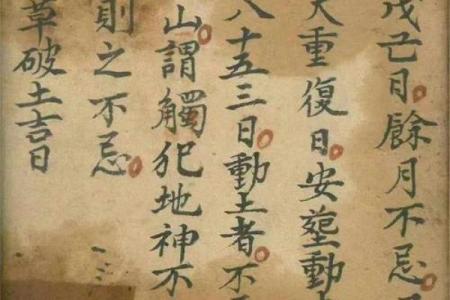 戊亡日餘月不忌
重復日安塟動
八十五三日動土者不
山謂觸犯地神不
則之不忌
草破土吉日